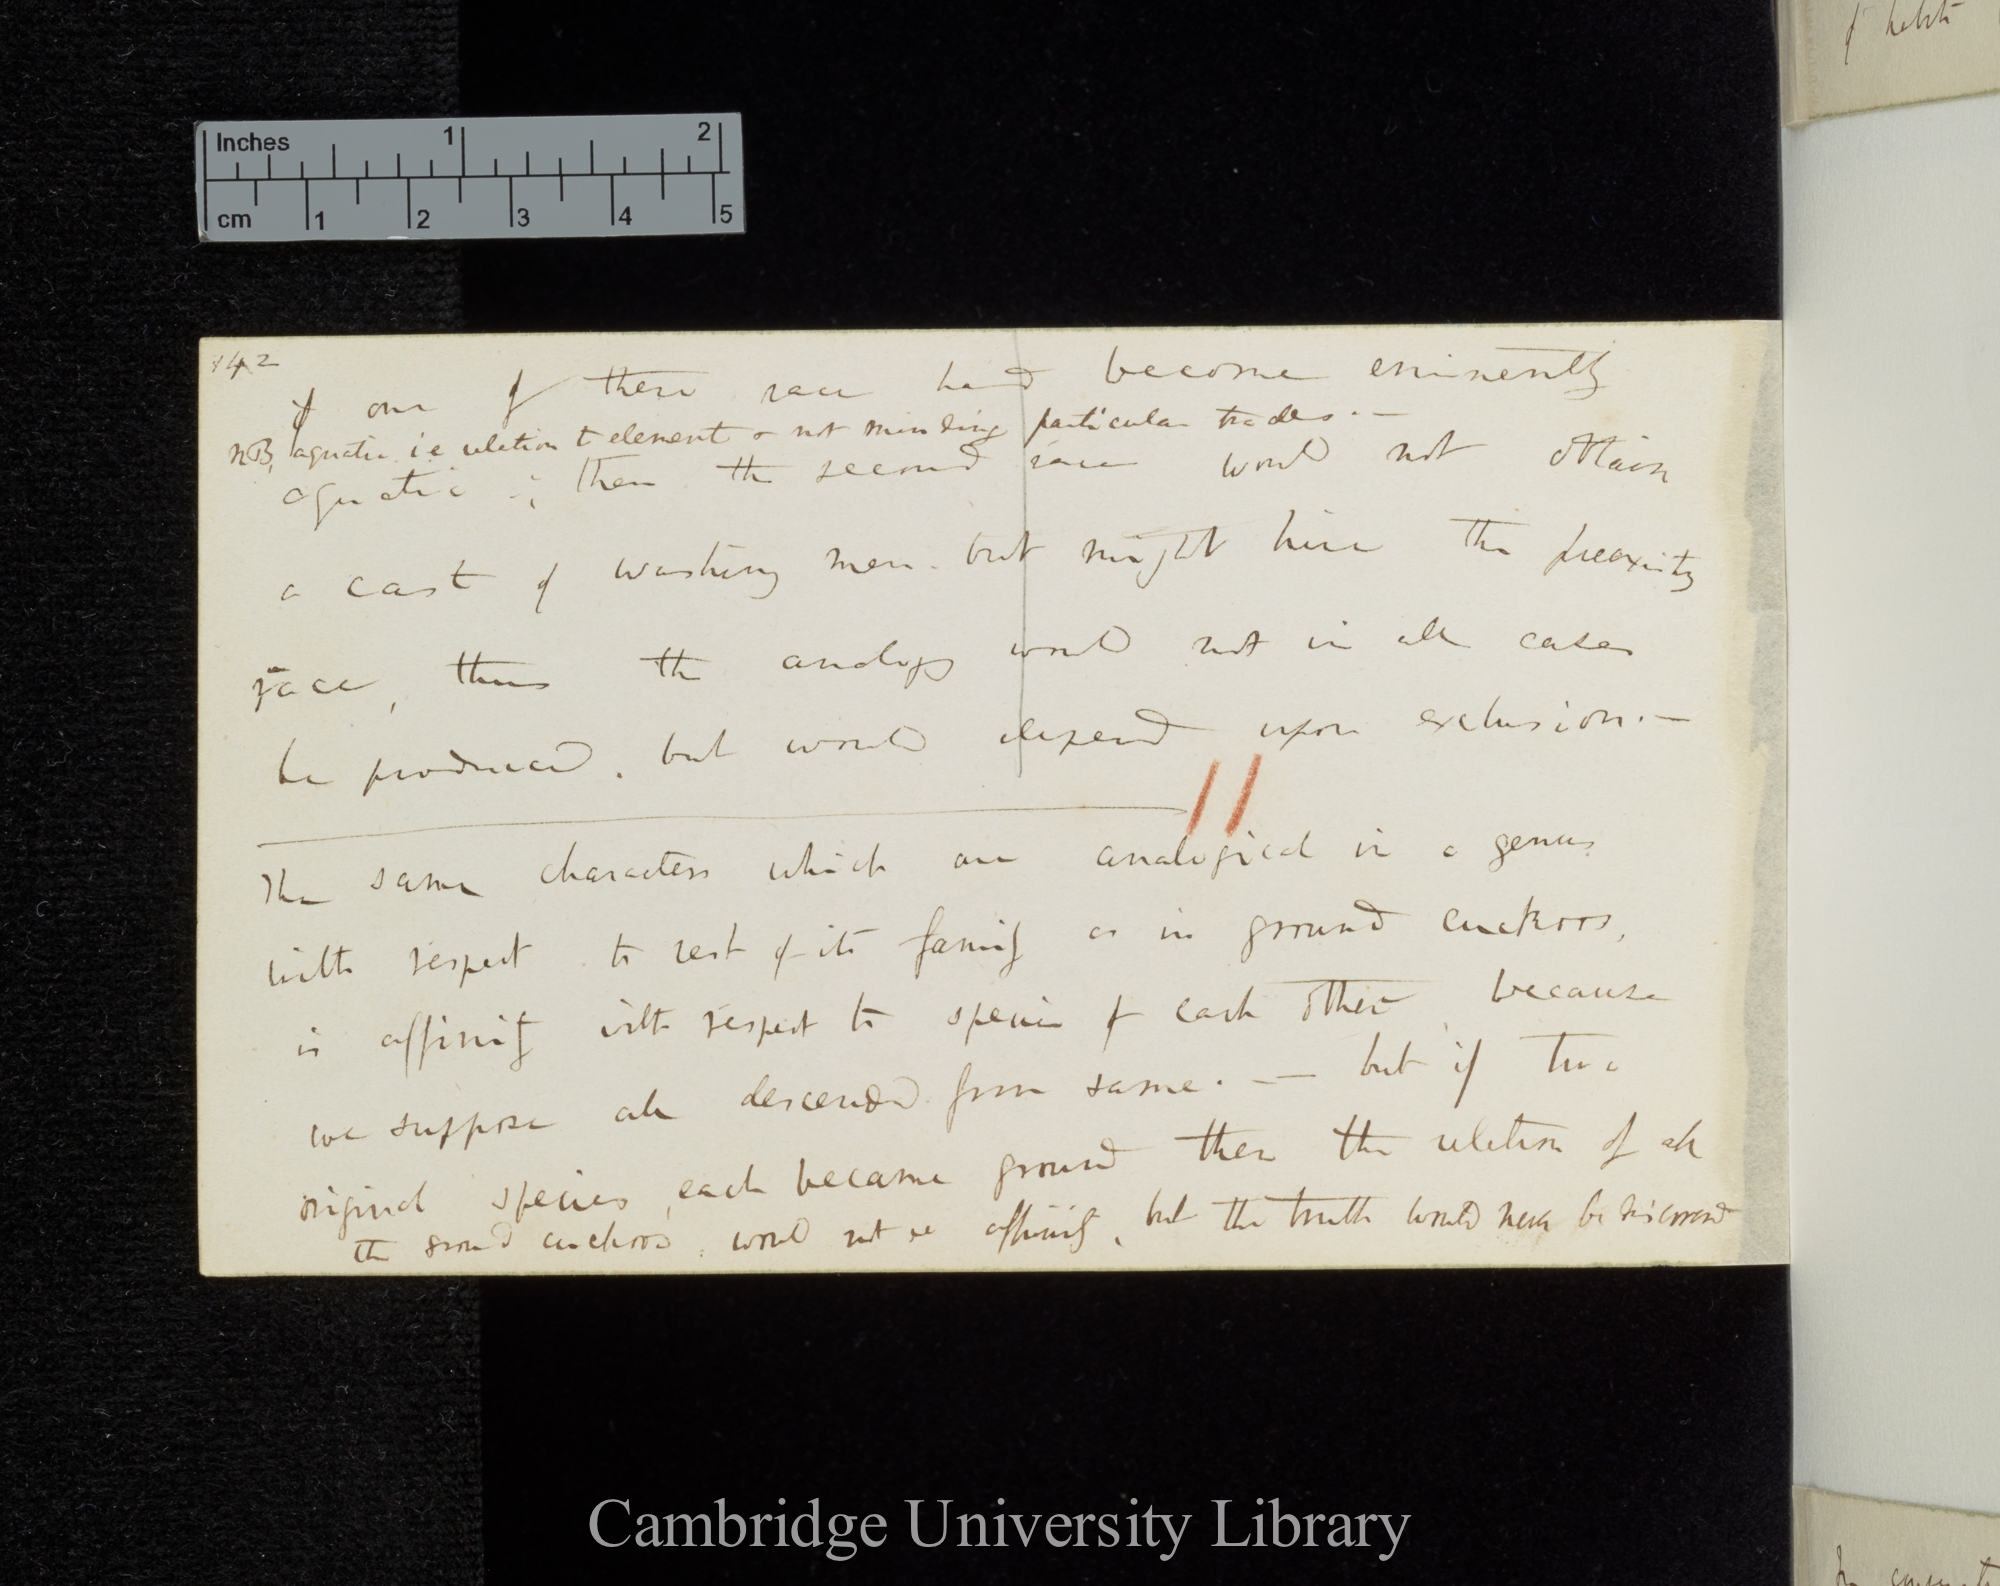 of habits
Inches 1 2
cm 1 2 3 4 5
142
if one of these races had become eminently
NB. aquatic i.e relation to element & not minding particular trades. —
aquatic .; then the second race would not obtain
a cast of washing men. but might hire the
race, thus the analogy would not in all cases
be produced. but would depend upon exclusion. —
The same characters which are analogical in a genus
with respect to rest of its family as in ground cuckoos,
is affinity with respect to species of each other, because
we suppose all descended from same. — but if two
original species, each became ground then the relation of all
the ground cuckoos. would not be affinity, but the truth would never be discovered
Cambridge University Library